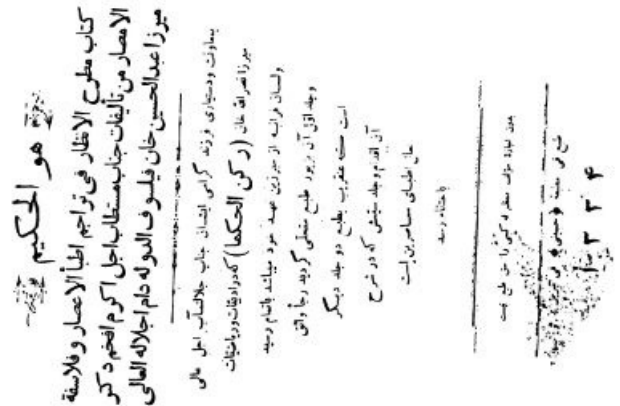 هو الحکیم
کتاب مطرح الانظار فی تراجم اطبأ الاعصار و فلاسفة
الامصار من تألیفات جناب مستطاب اجل اکرم افخم دکتر
میرزا عبدالحسین خان فیلسوف الدوله دام اجلاله العالی
بمعاونت و دستیاری فرزند گرامی ایشان جناب جلالتمآب اجل عالی
میرزا نصرالله خان (رکن الحکما) که در ادبیات و ریاضیات
ولسان فرانسه از مبرزین عهد خود میباشد باتمام رسید
وجلد اوّل آن بزیور طبع محلی گردید رجأ واثق
است که عنقریب بطبع دو جلد دیگر
آن اقدام و جلد سیمش که در شرح
حال اطبای معاصرین است
باختتام رسد
بدون اجازه مؤلف معظم له کسی را حق طبع نیست
طبع فی
۱۳۳۴